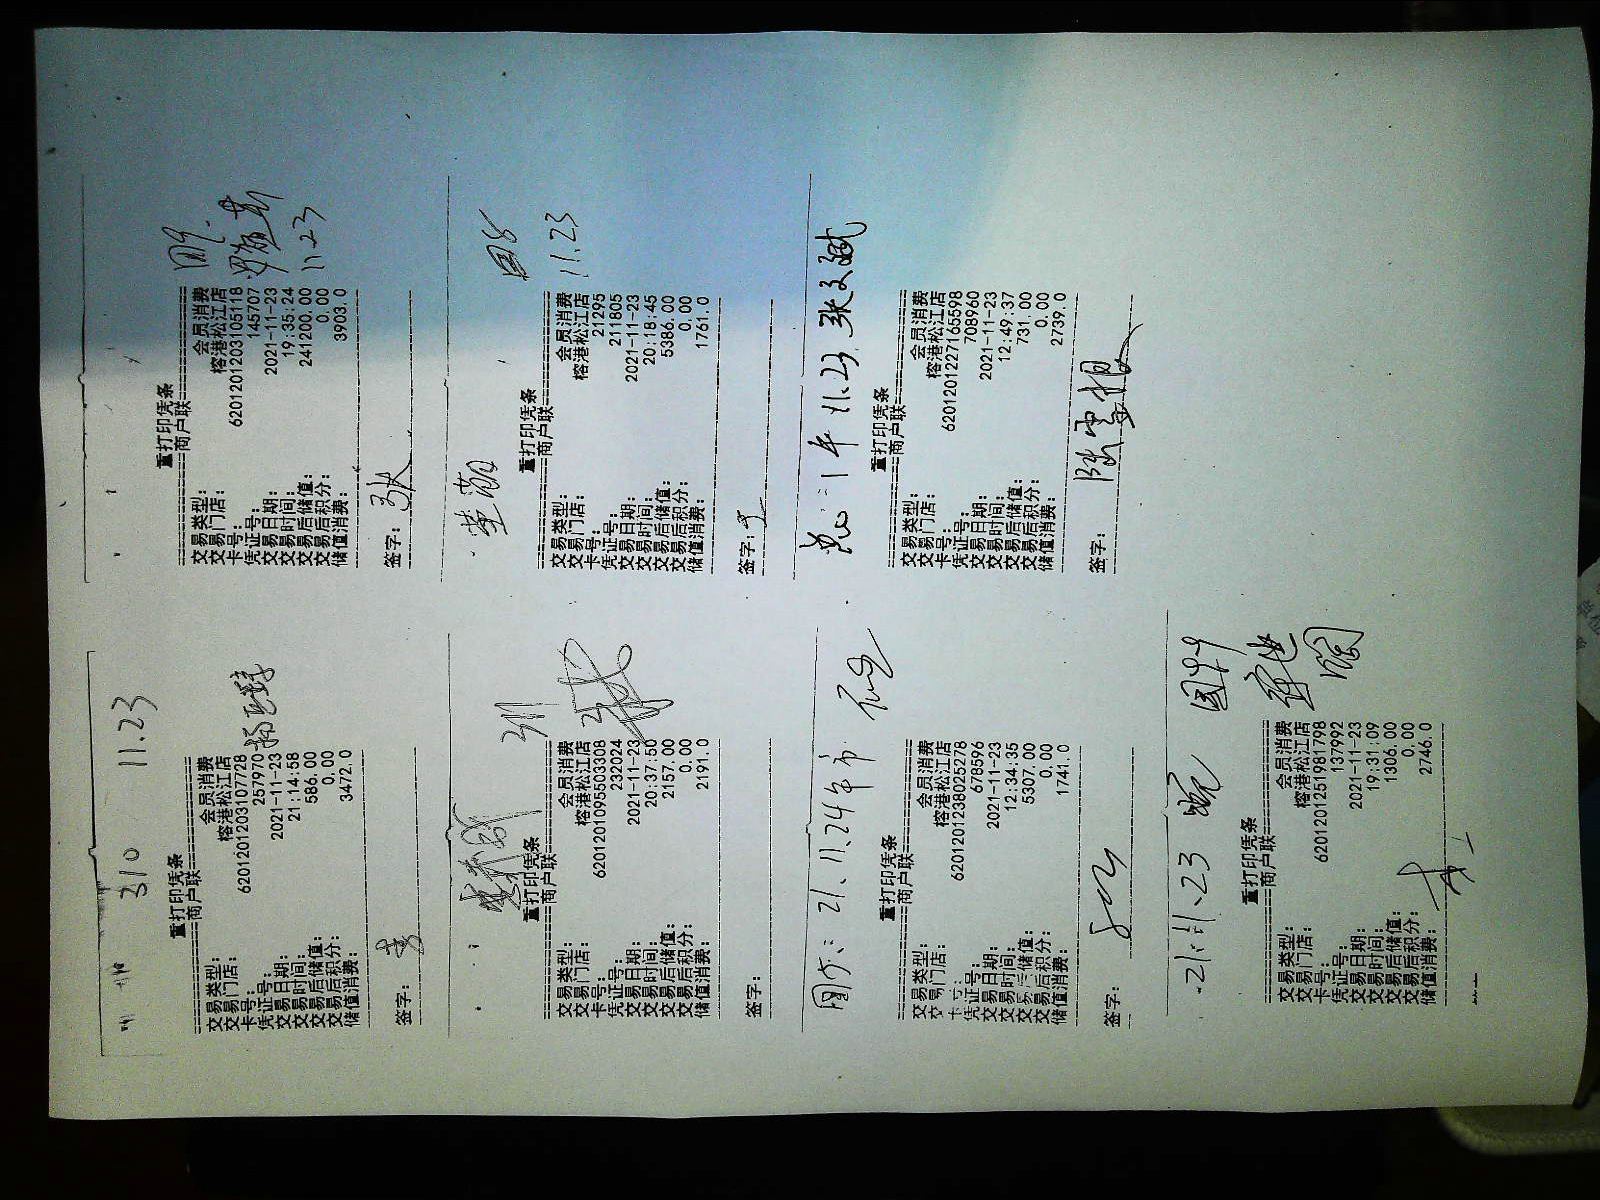 310 11.23
重打印凭条
商户联
交易类型: 会员消费
交易门店: 榕港松江店
卡号: 6201201203107728
凭证号: 257970
交易日期: 2021-11-23
交易时间: 21:14:58
交易后储值: 586.00
交易后积分: 0.00
储值消费: 3472.0
签字:
11.23
重打印凭条
商户联
交易类型: 会员消费
交易门店: 榕港松江店
卡号: 6201201203105118
凭证号: 145707
交易日期: 2021-11-23
交易时间: 19:35:24
交易后储值: 241200.00
交易后积分: 0.00
储值消费: 3903.0
签字: 张
重打印凭条
商户联
交易类型: 会员消费
交易门店: 榕港松江店
卡号: 6201201095503308
凭证号: 232024
交易日期: 2021-11-23
交易时间: 20:37:50
交易后储值: 2157.00
交易后积分: 0.00
储值消费: 2191.0
签字:
11.23
重打印凭条
商户联
交易类型: 会员消费
交易门店: 榕港松江店
卡号: 21295
凭证号: 211805
交易日期: 2021-11-23
交易时间: 20:18:45
交易后储值: 5386.00
交易后积分: 0.00
储值消费: 1761.0
签字:
21.11.24
重打印凭条
商户联
交易类型: 会员消费
交易门店: 榕港松江店
卡号: 6201201238025278
凭证号: 678596
交易日期: 2021-11-23
交易时间: 12:34:35
交易后储值: 5307.00
交易后积分: 0.00
储值消费: 1741.0
签字:
11.23 张文斌
重打印凭条
商户联
交易类型: 会员消费
交易门店: 榕港松江店
卡号: 6201201227165598
凭证号: 708960
交易日期: 2021-11-23
交易时间: 12:49:37
交易后储值: 731.00
交易后积分: 0.00
储值消费: 2739.0
签字:
21.11.23
重打印凭条
商户联
交易类型: 会员消费
交易门店: 榕港松江店
卡号: 6201201251981798
凭证号: 137992
交易日期: 2021-11-23
交易时间: 19:31:09
交易后储值: 1306.00
交易后积分: 0.00
储值消费: 2746.0